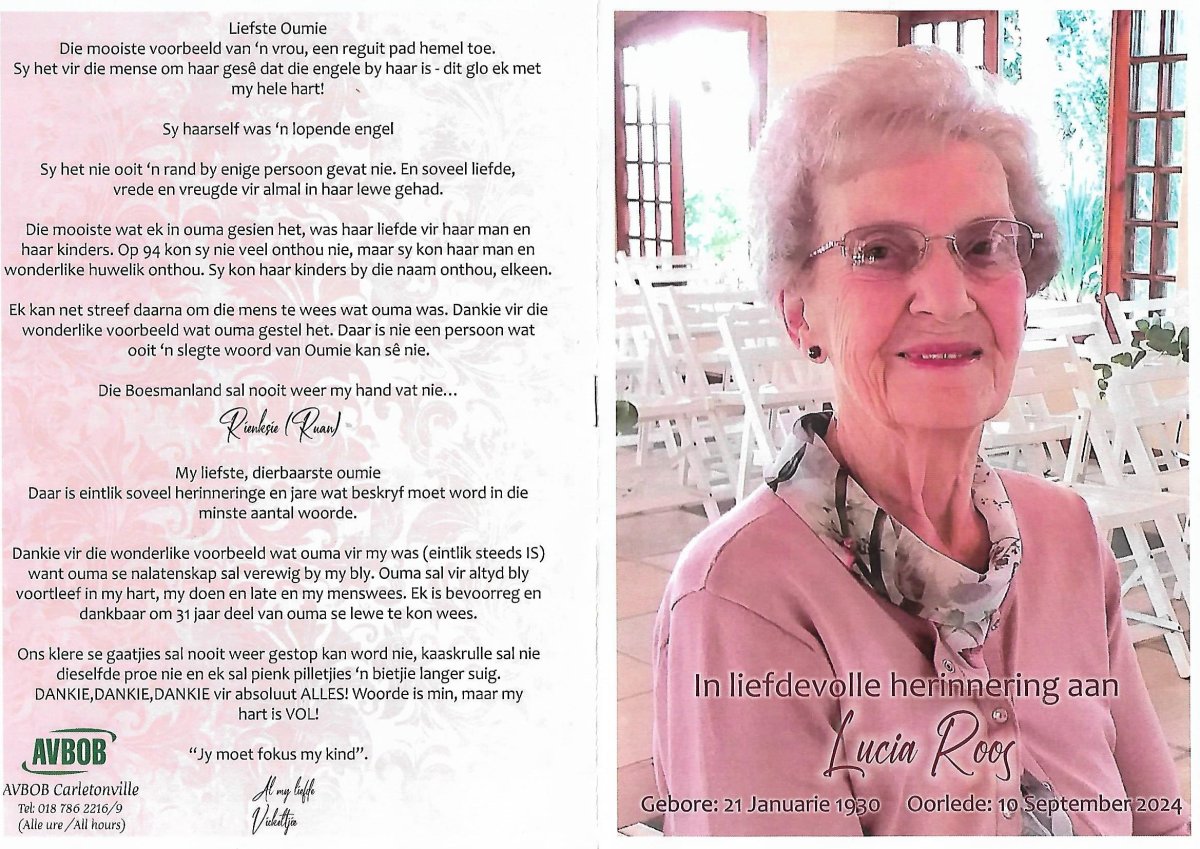 Liefste Oumie
Die mooiste voorbeeld van ‘n vrou, een reguit pad hemel toe.
Sy het vir die mense om haar gesê dat die engele by haar is - dit glo ek met
my hele hart!
Sy haarself was ‘n lopende engel
Sy het nie ooit ‘n rand by enige persoon gevat nie. En soveel liefde,
vrede en vreugde vir almal in haar lewe gehad.
Die mooiste wat ek in ouma gesien het, was haar liefde vir haar man en
haar kinders. Op 94 kon sy nie veel onthou nie, maar sy kon haar man en
wonderlike huwelik onthou. Sy kon haar kinders by die naam onthou, elkeen.
Ek kan net streef daarna om die mens te wees wat ouma was. Dankie vir die
wonderlike voorbeeld wat ouma gestel het. Daar is nie een persoon wat
ooit ‘n slegte woord van Oumie kan sê nie.
Die Boesmanland sal nooit weer my hand vat nie...
Rienksie (Ruan)
My liefste, dierbaarste oumie
Daar is eintlik soveel herinneringe en jare wat beskryf moet word in die
minste aantal woorde.
Dankie vir die wonderlike voorbeeld wat ouma vir my was (eintlik steeds IS)
want ouma se nalatenskap sal verewig by my bly. Ouma sal vir altyd bly
voortleef in my hart, my doen en late en my menswees. Ek is bevoorreg en
dankbaar om 31 jaar deel van ouma se lewe te kon wees.
Ons klere se gaatjies sal nooit weer gestop kan word nie, kaaskrulle sal nie
dieselfde proe nie en ek sal pienk pilletjies ‘n bietjie langer suig.
DANKIE,DANKIE,DANKIE vir absoluut ALLES! Woorde is min, maar my
hart is VOL!
“Jy moet fokus my kind”.
Al my liefde
AVBOB
AVBOB Carletonville
Tel: 018 786 2216/9
(Alle ure /All hours)
In liefdevolle herinnering aan
Lucia Roos
Gebore: 21 Januarie 1930 Oorlede: 10 September 2024